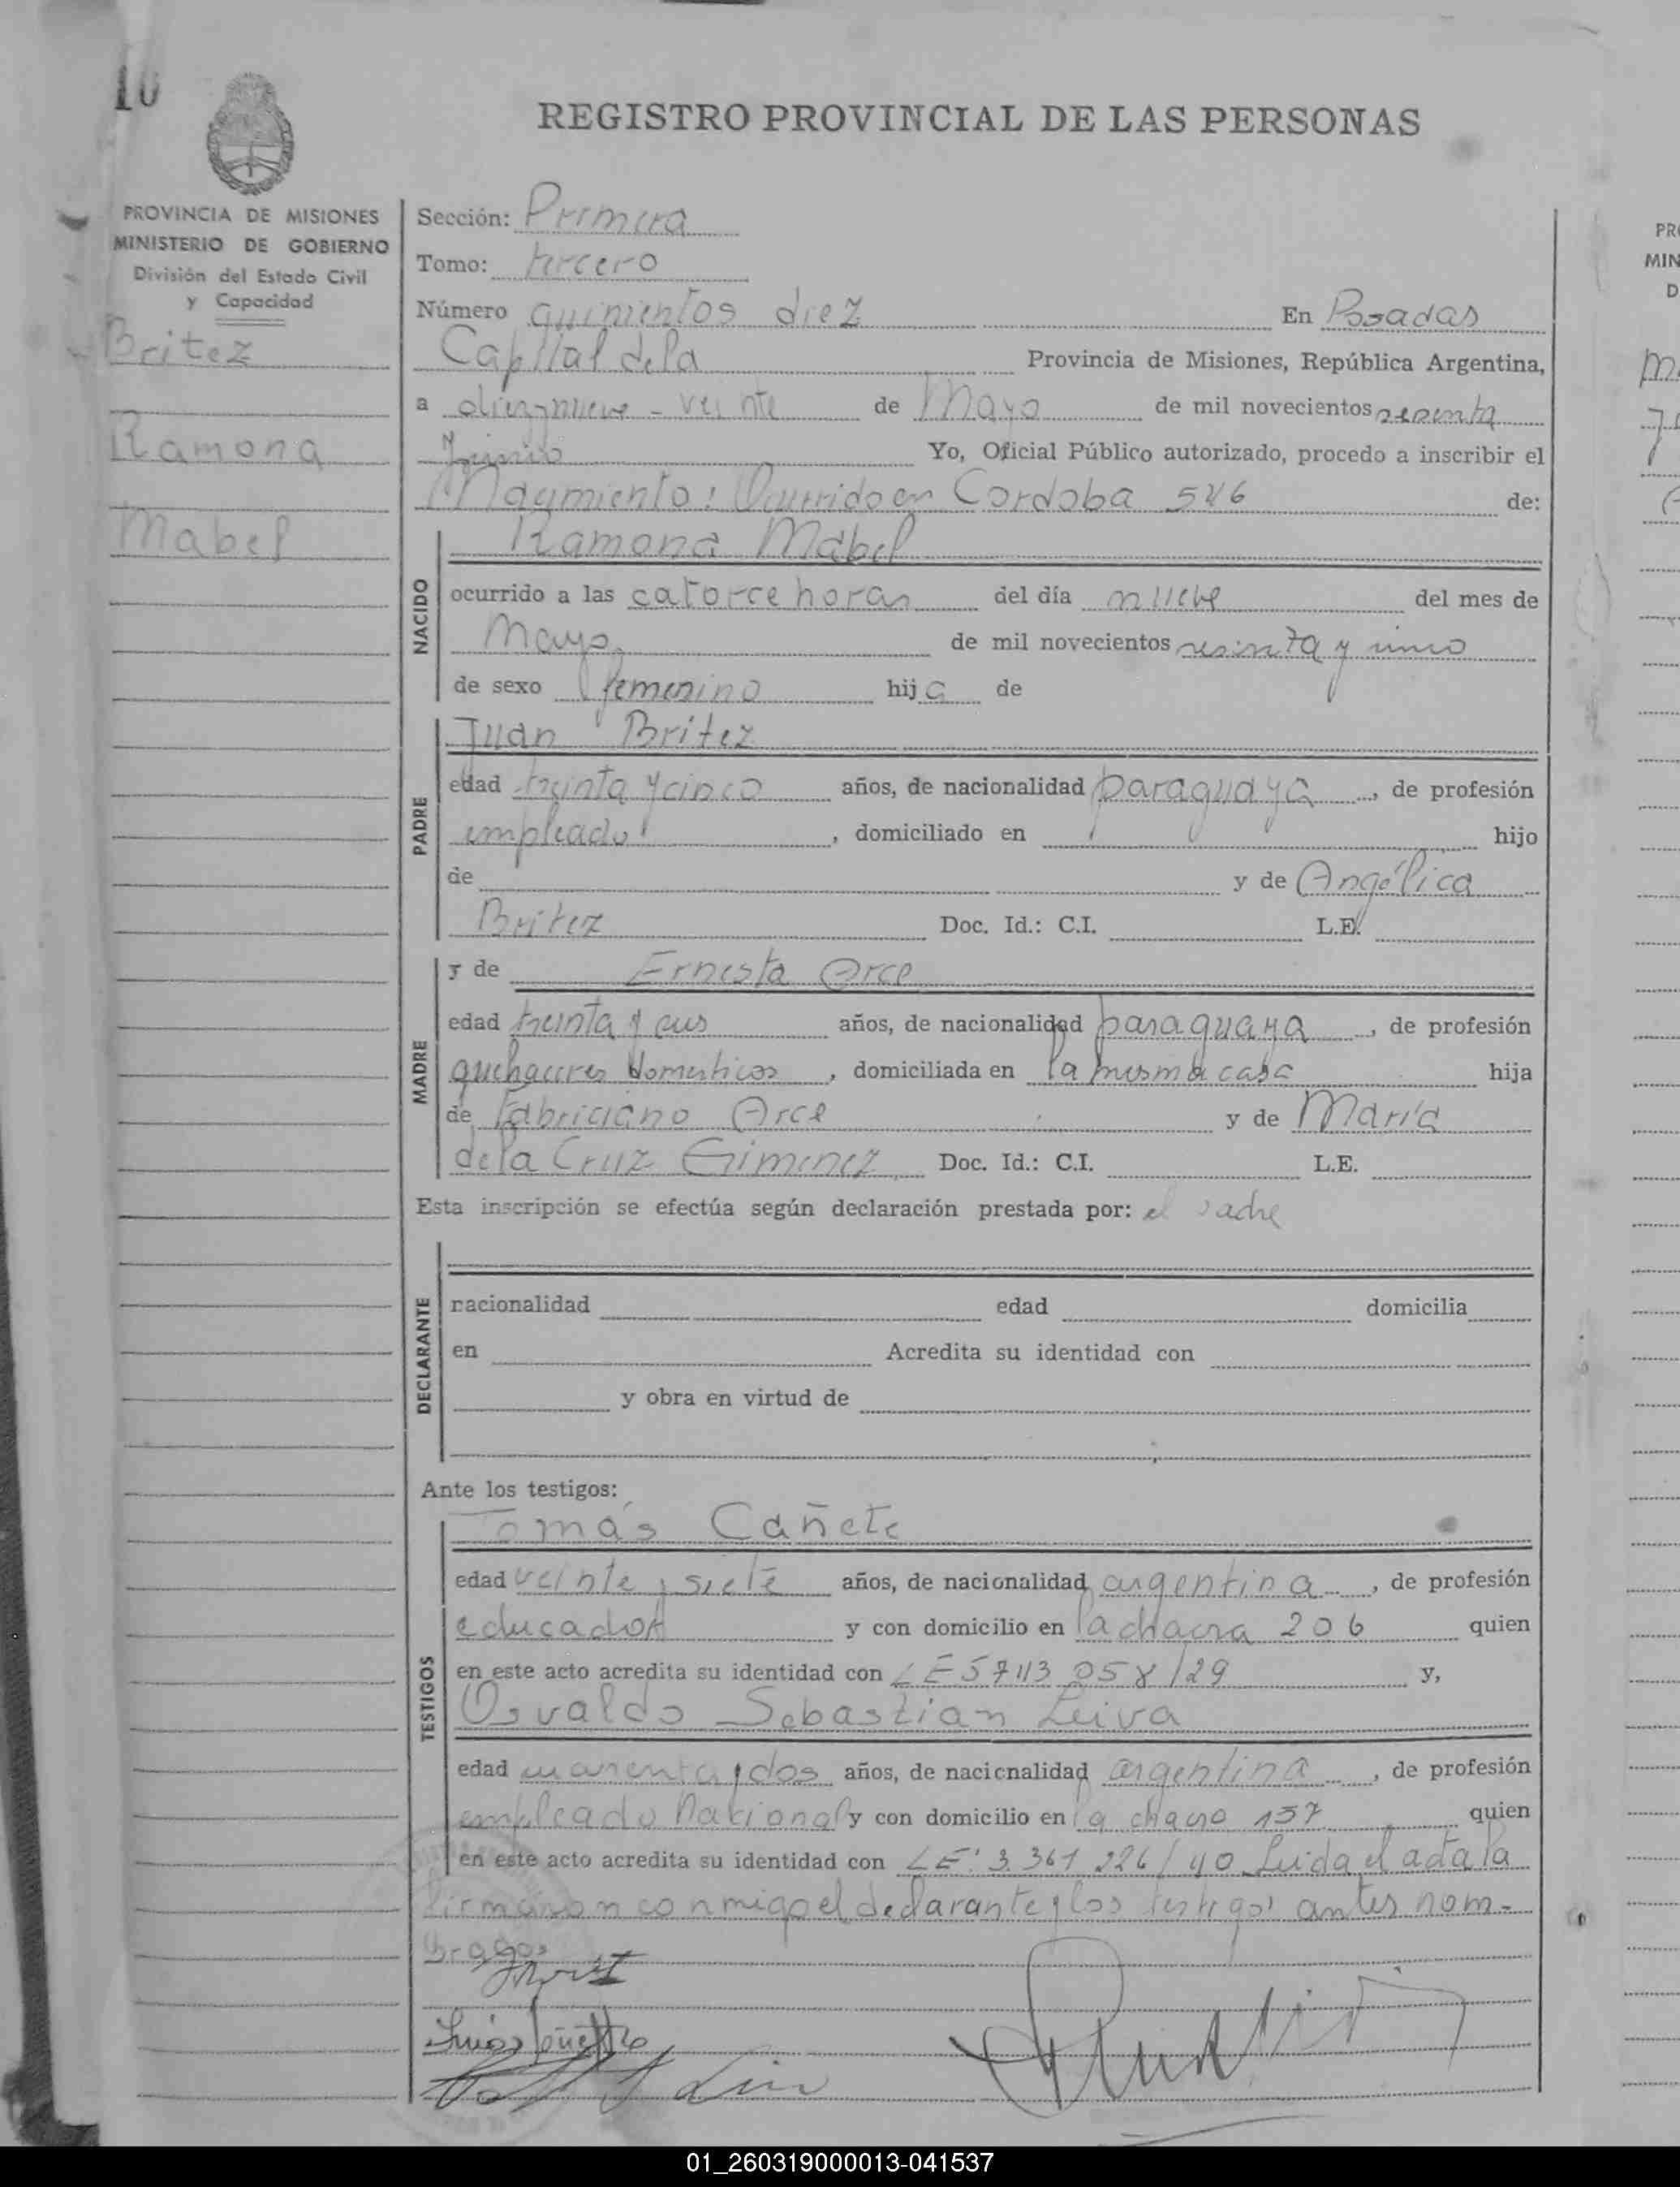 10
REGISTRO PROVINCIAL DE LAS PERSONAS
PROVINCIA DE MISIONES
MINISTERIO DE GOBIERNO
División del Estado Civil
y Capacidad
Britez
Ramona
Mabel
Sección: Primera
Tomo: tercero
Número quinientos diez En Posadas
Capital de la Provincia de Misiones, República Argentina,
a diez y nueve - veinte de Mayo de mil novecientos sesenta
Yo, Oficial Público autorizado, procedo a inscribir el
Nacimiento: Ocurrido en Cordoba 546 de:
NACIDO
Ramona Mabel
ocurrido a las catorce horas del día nueve del mes de
Mayo de mil novecientos sesenta y uno
de sexo femenino hija de
PADRE
Juan Britez
edad treinta y cinco años, de nacionalidad paraguaya, de profesión
empleado, domiciliado en hijo
de y de Angélica
Britez Doc. Id.: C.I. L.E.
MADRE
y de Ernesta Arce
edad treinta y años, de nacionalidad paraguaya, de profesión
quehaceres domesticos, domiciliada en la misma casa hija
de Fabriciano Arce y de María
de la Cruz Gimenez Doc. Id.: C.I. L.E.
Esta inscripción se efectúa según declaración prestada por: el padre
DECLARANTE
nacionalidad edad domicilia
en Acredita su identidad con
y obra en virtud de
Ante los testigos:
TESTIGOS
Tomás Cañete
edad veinte y siete años, de nacionalidad argentina, de profesión
educador y con domicilio en la chacra 206 quien
en este acto acredita su identidad con LE y,
Osvaldo Sebastian Leiva
edad cuarenta y dos años, de nacionalidad argentina, de profesión
empleado Nacional y con domicilio en la chacra 157 quien
en este acto acredita su identidad con LE: 3.361.226/40 Leida el acta la
firmaron conmigo el declarante y los testigos antes nom-
brados
01_260319000013-041537